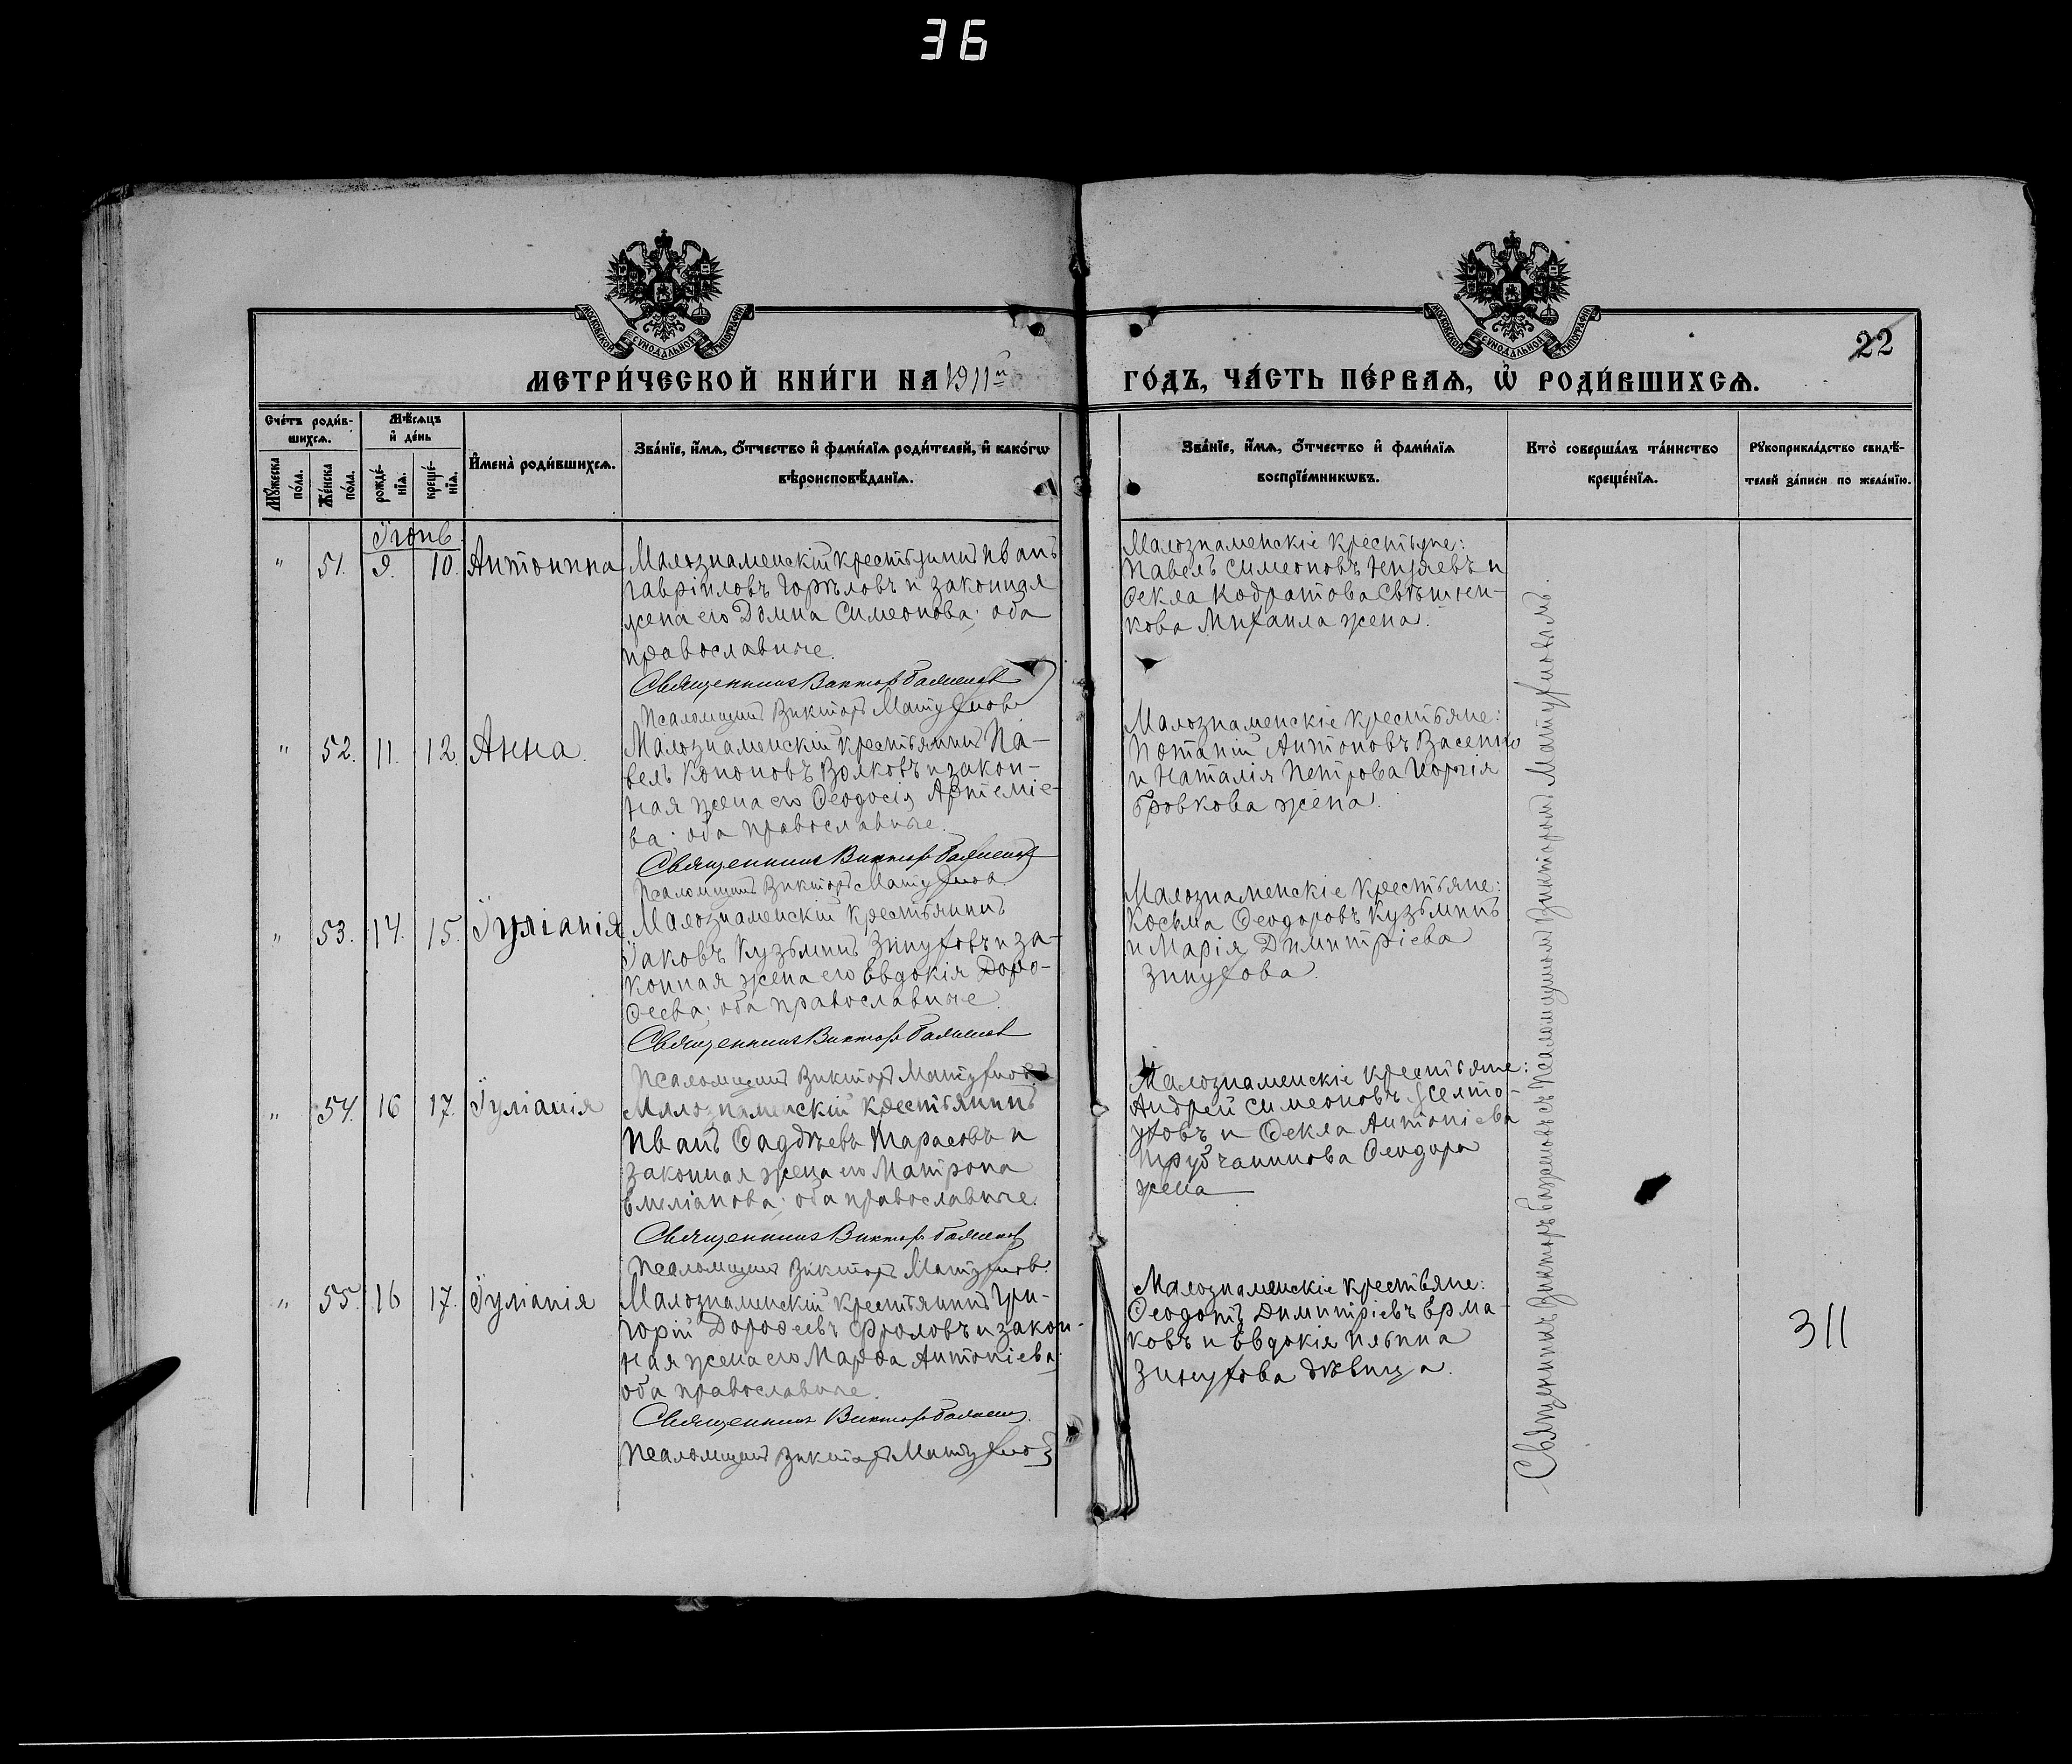 36
МОСКОВСКОЙ СУНОДАЛЬНОЙ ТИПОГРАФІИ
МОСКОВСКОЙ СУНОДАЛЬНОЙ ТИПОГРАФІИ
22
МЕТРИ́ЧЕСКОЙ КНИ́ГИ НА 1911й ГО́ДЪ, ЧА́СТЬ ПЕ́РВАѦ, Ѽ РОДИ́ВШИХСѦ.
Сче́тъ роди́в-
шихсѧ.
Мѣ́сѧцъ
и҆ де́нь
Мꙋ́жеска по́ла.
Же́нска по́ла.
рожде́-
нїѧ:
креще́-
нїѧ.
И҆мена̀ роди́вшихсѧ.
Зва́нїе, и҆́мѧ, ѻ҆́тчество и҆ фами́лїѧ роди́телей, и҆ како́гѡ
вѣроисповѣ́данїѧ.
Зва́нїе, и҆́мѧ, ѻ҆́тчество и҆ фами́лїѧ
воспрїе́мникѡвъ.
Кто̀ соверша́лъ та́инство
креще́нїѧ.
Рꙋкоприкла́дство свидѣ́-
телей за́писи по жела́нїю.
Іюнь
" 51. 9. 10. Антонина
Малознаменскій крестьянинъ Иванъ
Гавріиловъ Горѣловъ и законная
жена его Домна Симеонова; оба
православные.
Священникъ Викторъ Баженов
Псаломщикъ Викторъ Матухнов
Малознаменскіе крестьяне:
Павелъ Симеоновъ и
Ѳекла Кодратова
кова Михаила жена.
" 52. 11. 12. Анна.
Малознаменскій крестьянинъ Па-
велъ Кононовъ Волковъ и закон-
ная жена его Ѳеодосія Артеміе-
ва; оба православные.
Священникъ Викторъ Баженов
Псаломщикъ Викторъ Матухнов
Малознаменскіе крестьяне:
Потапій Антоновъ Васенко
и Наталія Петрова Георгія
Бровкова жена.
" 53. 14. 15. Іуліанія
Малознаменскій крестьянинъ
Іаковъ Кузьминъ Зинуховъ и за-
конная жена его Евдокія Доро-
ѳеева; оба православные.
Священникъ Викторъ Баженов
Псаломщикъ Викторъ Матухнов
Малознаменскіе крестьяне:
Косьма Ѳеодоровъ Кузьминъ
и Марія Димитріева
Зинухова.
" 54. 16 17. Іуліанія
Малознаменскій крестьянинъ
Иванъ Ѳаддѣевъ Тарасовъ и
законная жена его Матрона
Емеліанова; оба православные.
Священникъ Викторъ Баженов
Псаломщикъ Викторъ Матухнов
Малознаменскіе крестьяне:
Андрей Симеоновъ Желто-
уховъ и Ѳекла Антоніева
Трубчанинова Ѳеодора
жена
" 55. 16 17. Іуліанія
Малознаменскій крестьянинъ Гри-
горій Дороѳеевъ Фроловъ и закон-
ная жена его Марѳа Антоніева;
оба православные.
Священникъ Викторъ Баженов
Псаломщикъ Викторъ Матухнов
Малознаменскіе крестьяне:
Ѳеодотъ Димитріевъ Ерма-
ковъ и Евдокія Ильина
Зинухова дѣвица.
Священникъ Викторъ Баженовъ съ Псаломщикомъ Викторомъ Матухновымъ.
311